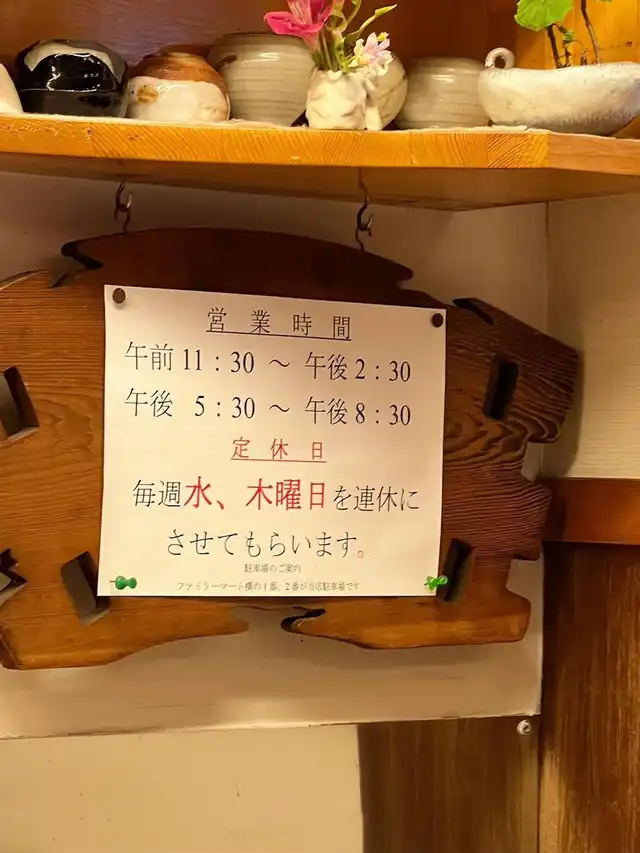 営業時間
午前 11：30 ～ 午後 2：30
午後 5：30 ～ 午後 8：30
定休日
毎週水、木曜日を連休に
させてもらいます。
駐車場のご案内
ファミリーマート横の１番、２番が当店駐車場です